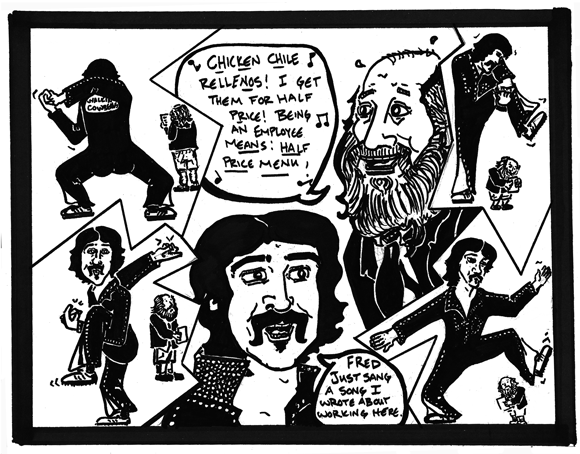 CHICKEN CHILE
RELLENOS! I GET
THEM FOR HALF
PRICE! BEING
AN EMPLOYEE
MEANS: HALF
PRICE MENU!
COWBOYS
FRED
JUST SANG
A SONG I
WROTE ABOUT
WORKING HERE.